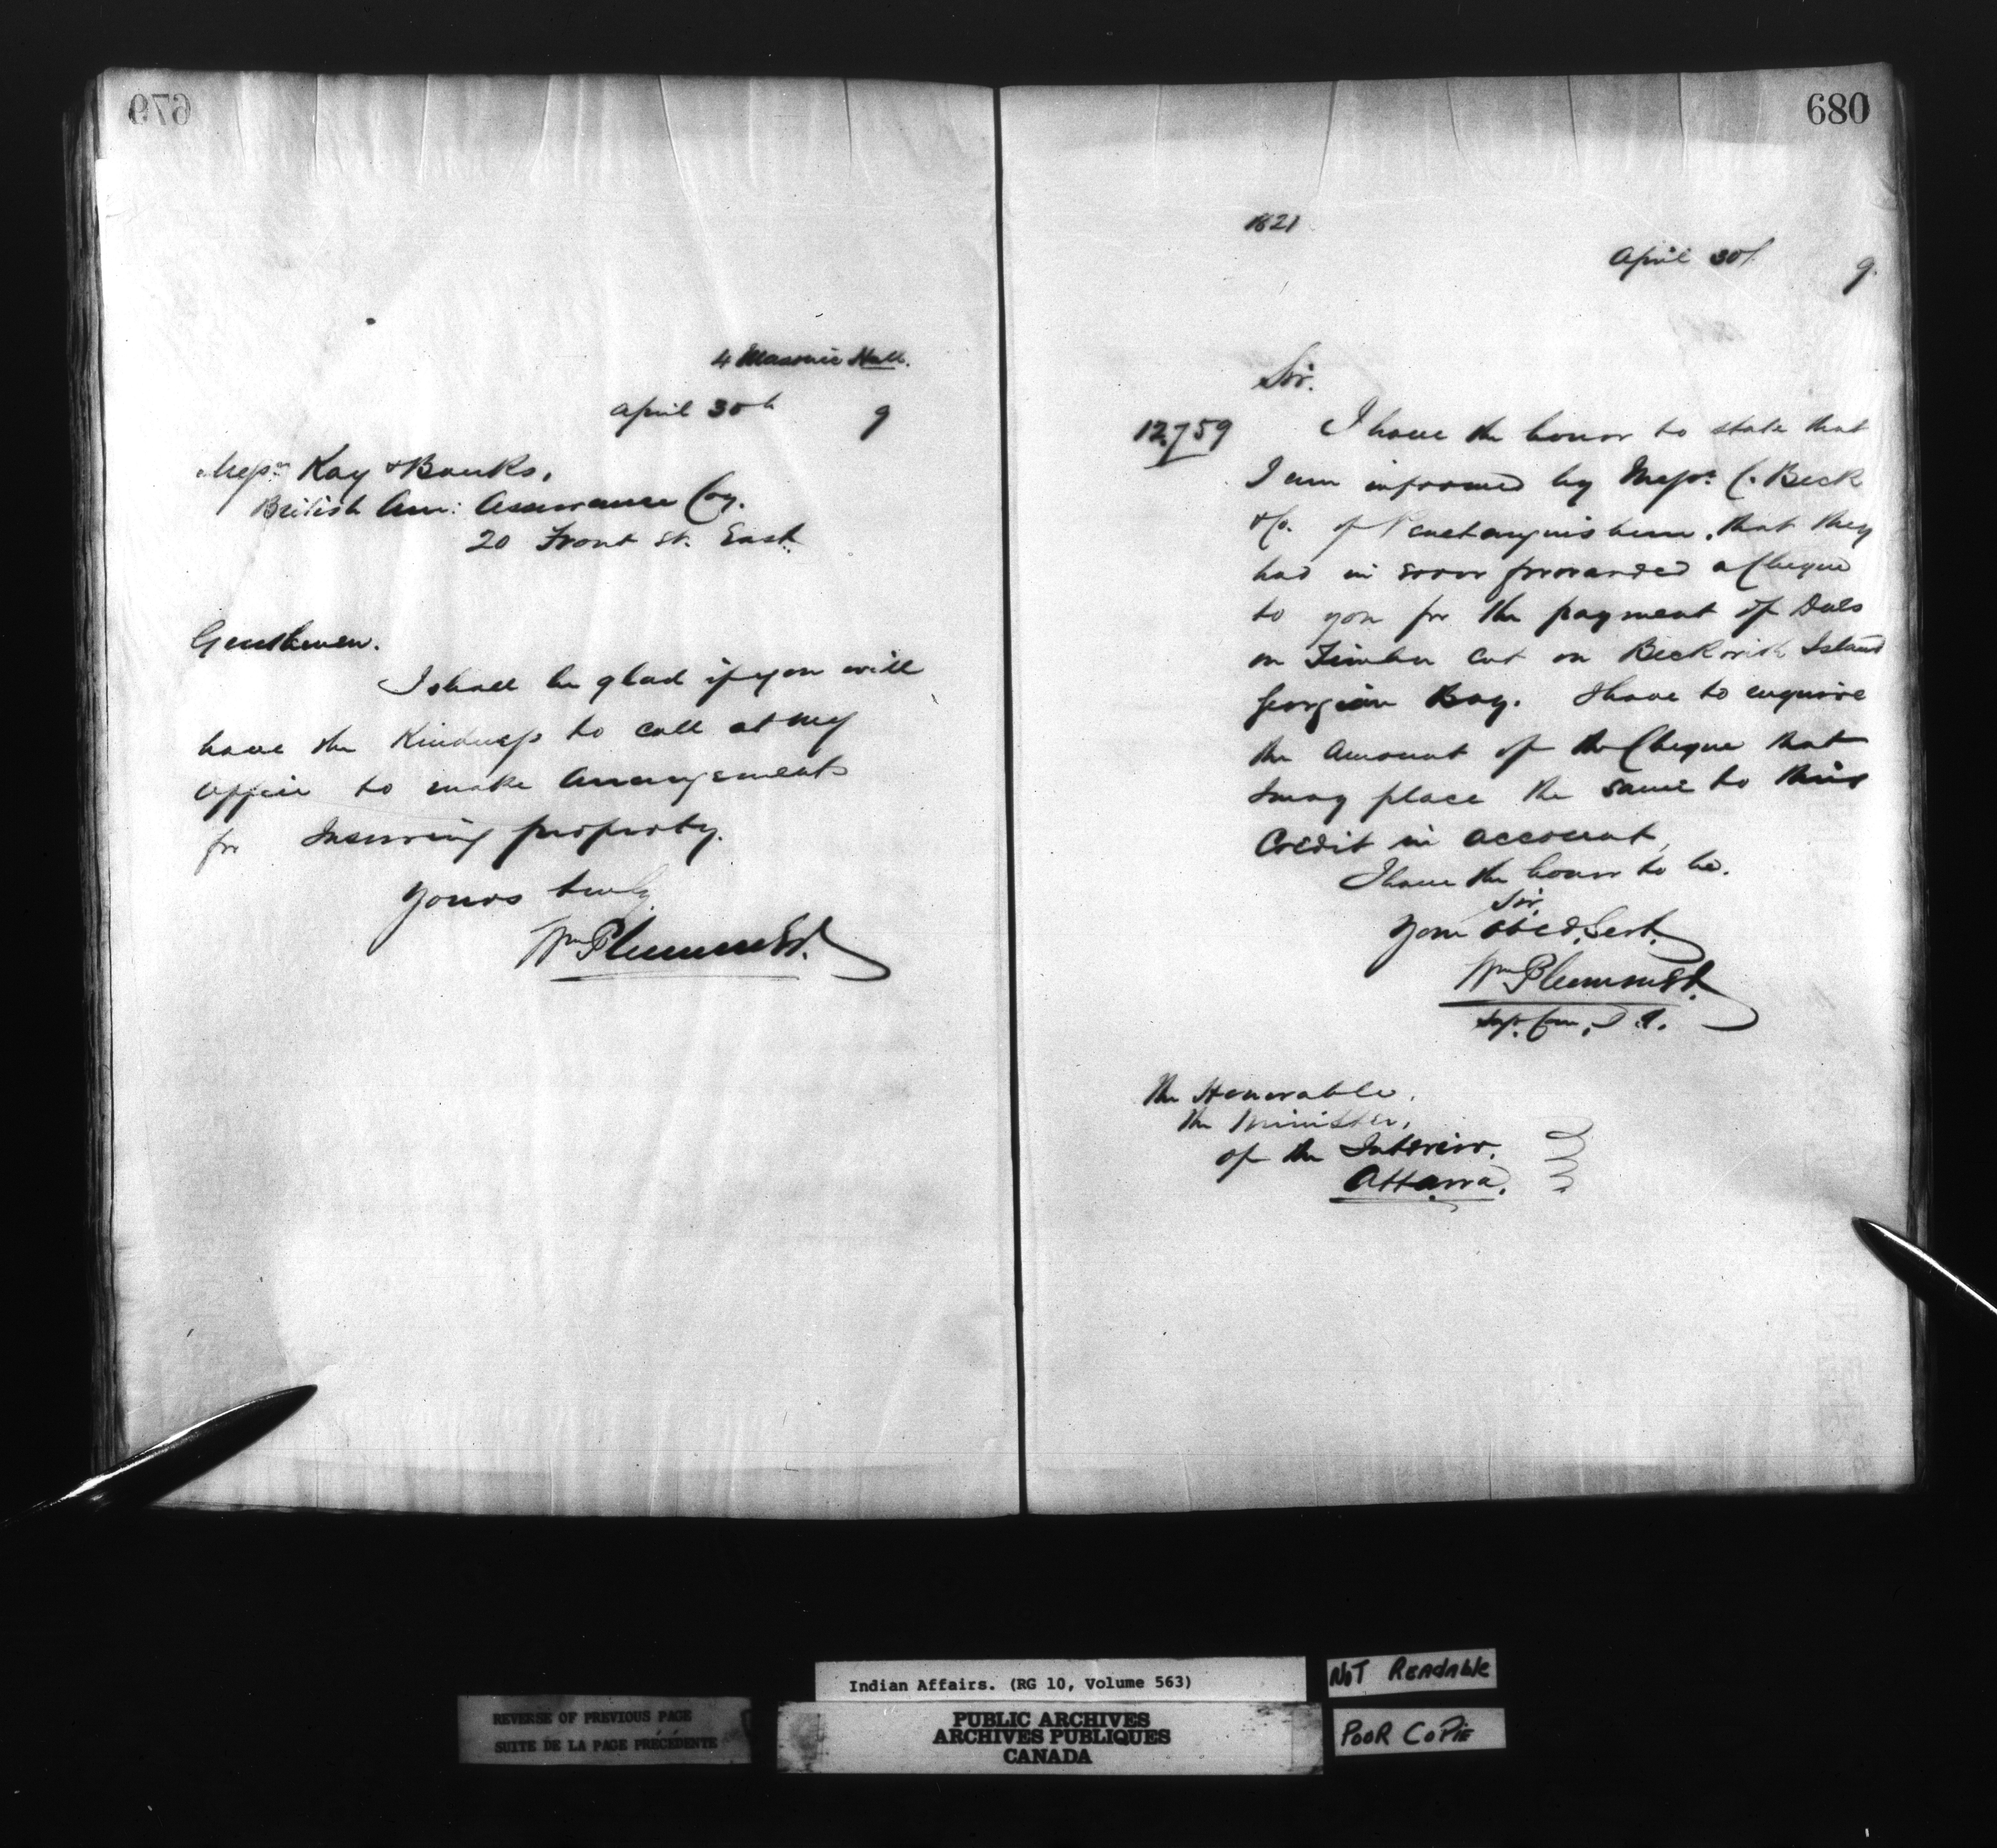 679
4 Masonic Hall.
April 30th 9
Messrs Kay & Banks,
British Am: Assurance Coy.
20 Front St. East.
Gentlemen.
I shall be glad if you will
have the Kindness to call at my
office to make Arrangements
for Insuring property.
Yours truly
Wm Plummer
680
1621
April 30/. 9.
Sir.
12.759 I have the honor to state that
I am informed by Messrs. C. Beck
& Co. of Penetanguishene, that they
had in error forwarded a Cheque
to you for the payment of Dues
on Timber cut on Beckwith Island
Georgian Bay. I have to enquire
the Amount of the Cheque that
I may place the same to their
Credit in account,
I have the honor to be.
Sir,
Your Obed. Servt.
Wm Plummer
Sup. Com. I. A.
The Honorable,
The Minister,
of the Interior.
Ottawa.
Indian Affairs. (RG 10, Volume 563)
NOT READABLE
REVERSE OF PREVIOUS PAGE
SUITE DE LA PAGE PRÉCÉDENTE
PUBLIC ARCHIVES
ARCHIVES PUBLIQUES
CANADA
POOR COPIE